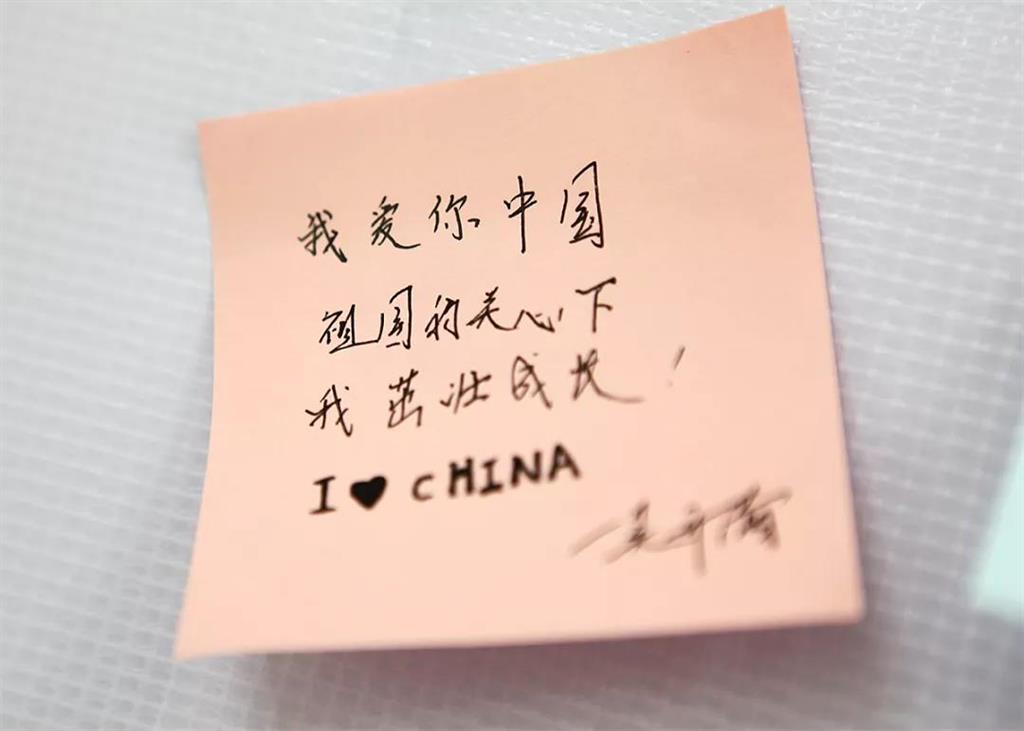 我爱你中国
祖国的关心下
我茁壮成长!
I ♥ CHINA